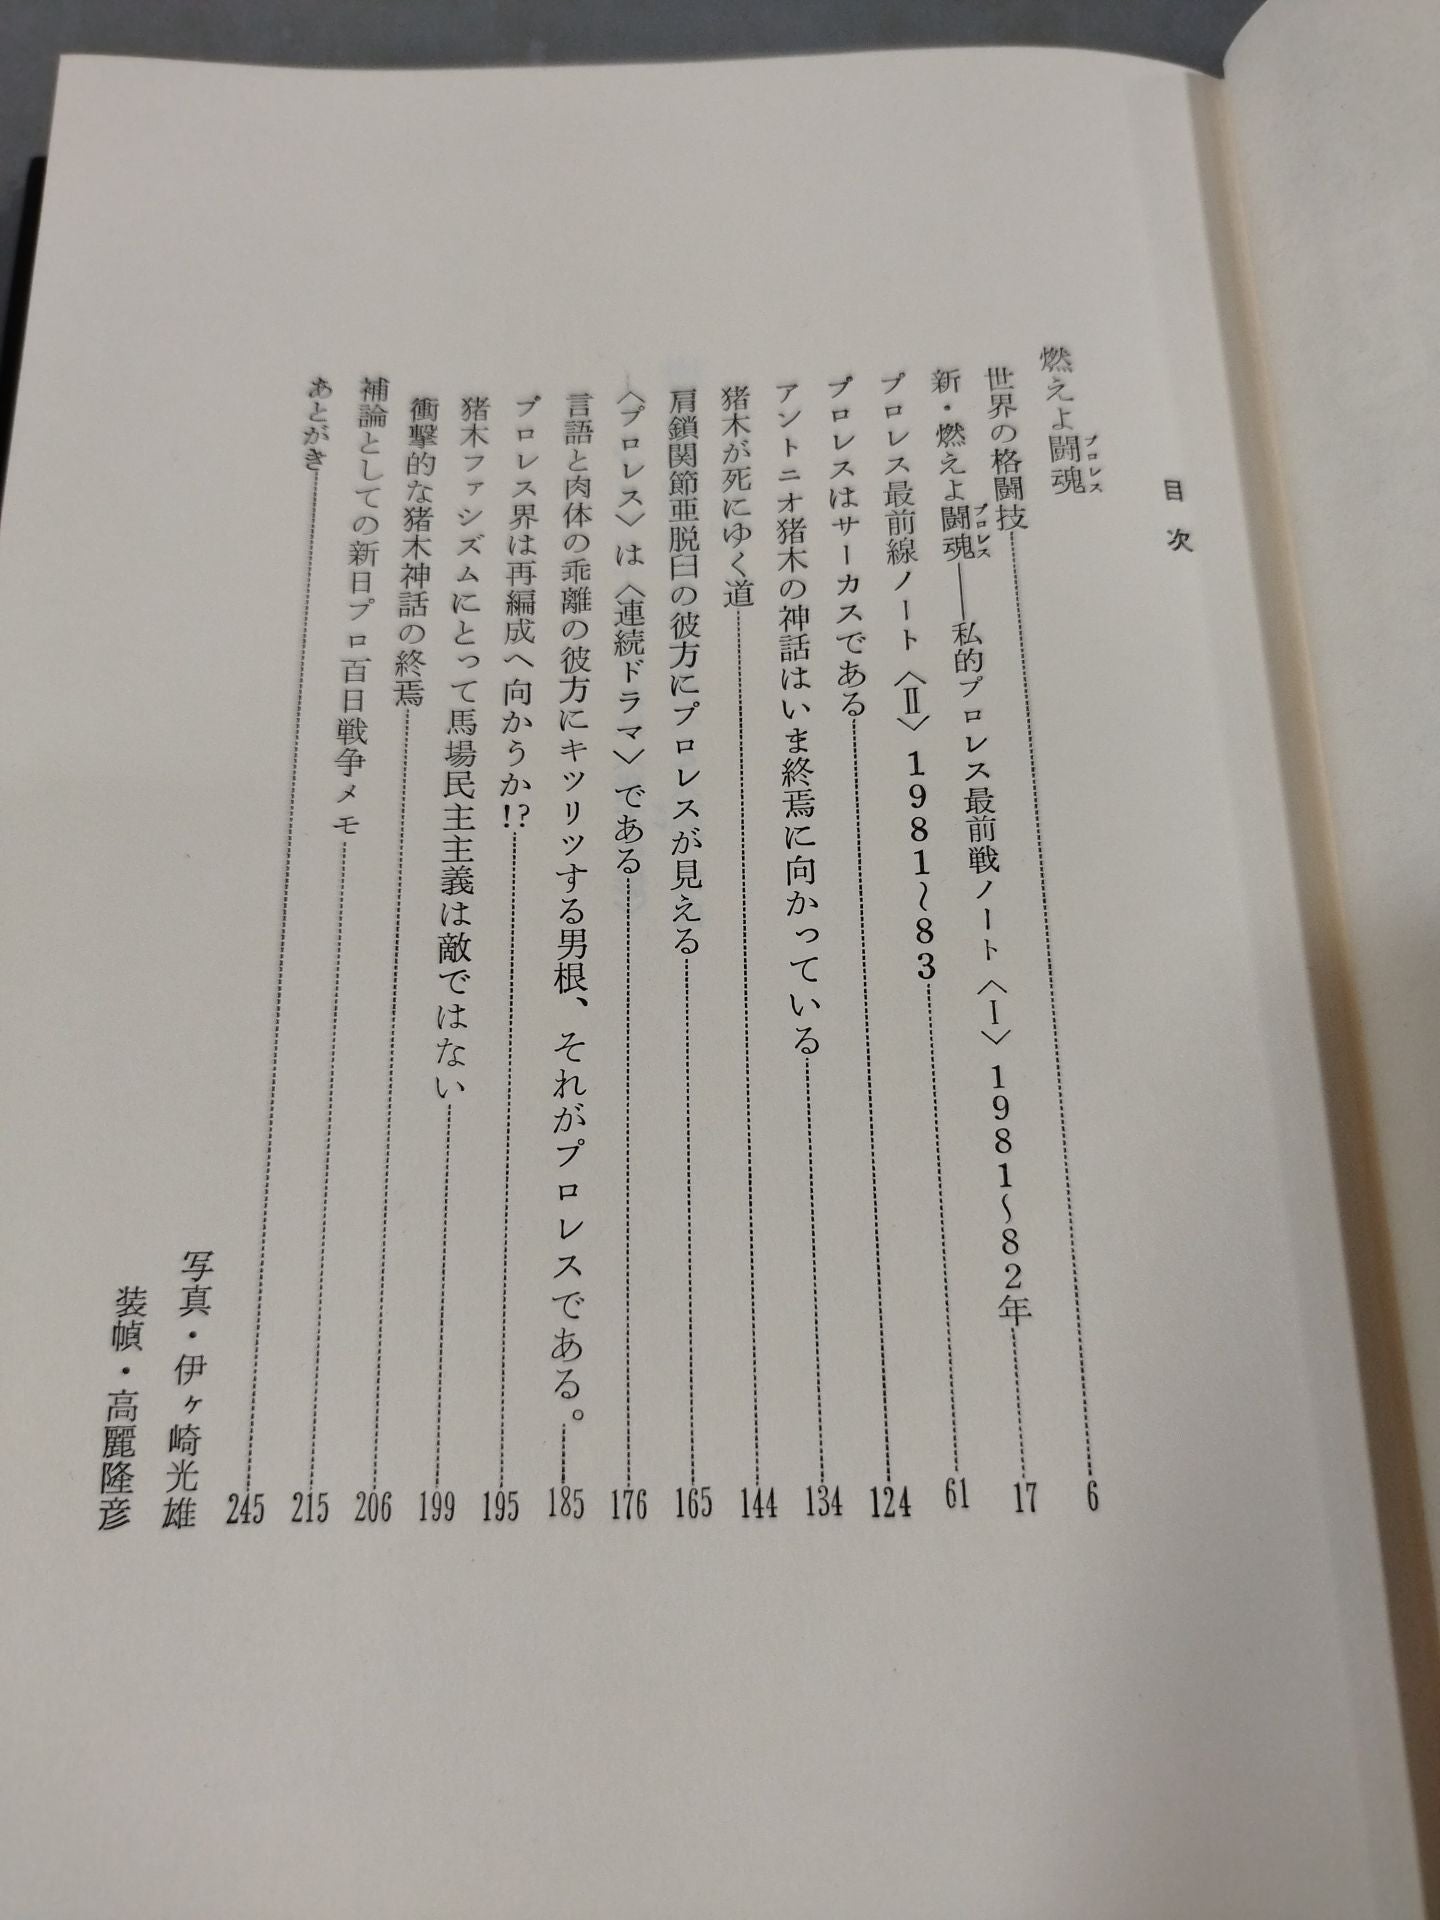 目次
燃えよ闘魂プロレス
世界の格闘技 6
新・燃えよ闘魂プロレス――私的プロレス最前戦ノート〈Ⅰ〉1981～82年 17
プロレス最前線ノート〈Ⅱ〉1981～83 61
プロレスはサーカスである 124
アントニオ猪木の神話はいま終焉に向かっている 134
猪木が死にゆく道 144
肩鎖関節亜脱臼の彼方にプロレスが見える 165
〈プロレス〉は〈連続ドラマ〉である 176
言語と肉体の乖離の彼方にキツリツする男根、それがプロレスである。 185
プロレス界は再編成へ向かうか!? 195
猪木ファシズムにとって馬場民主主義は敵ではない 199
衝撃的な猪木神話の終焉 206
補論としての新日プロ百日戦争メモ 215
あとがき 245
写真・伊ヶ崎光雄
装幀・高麗隆彦